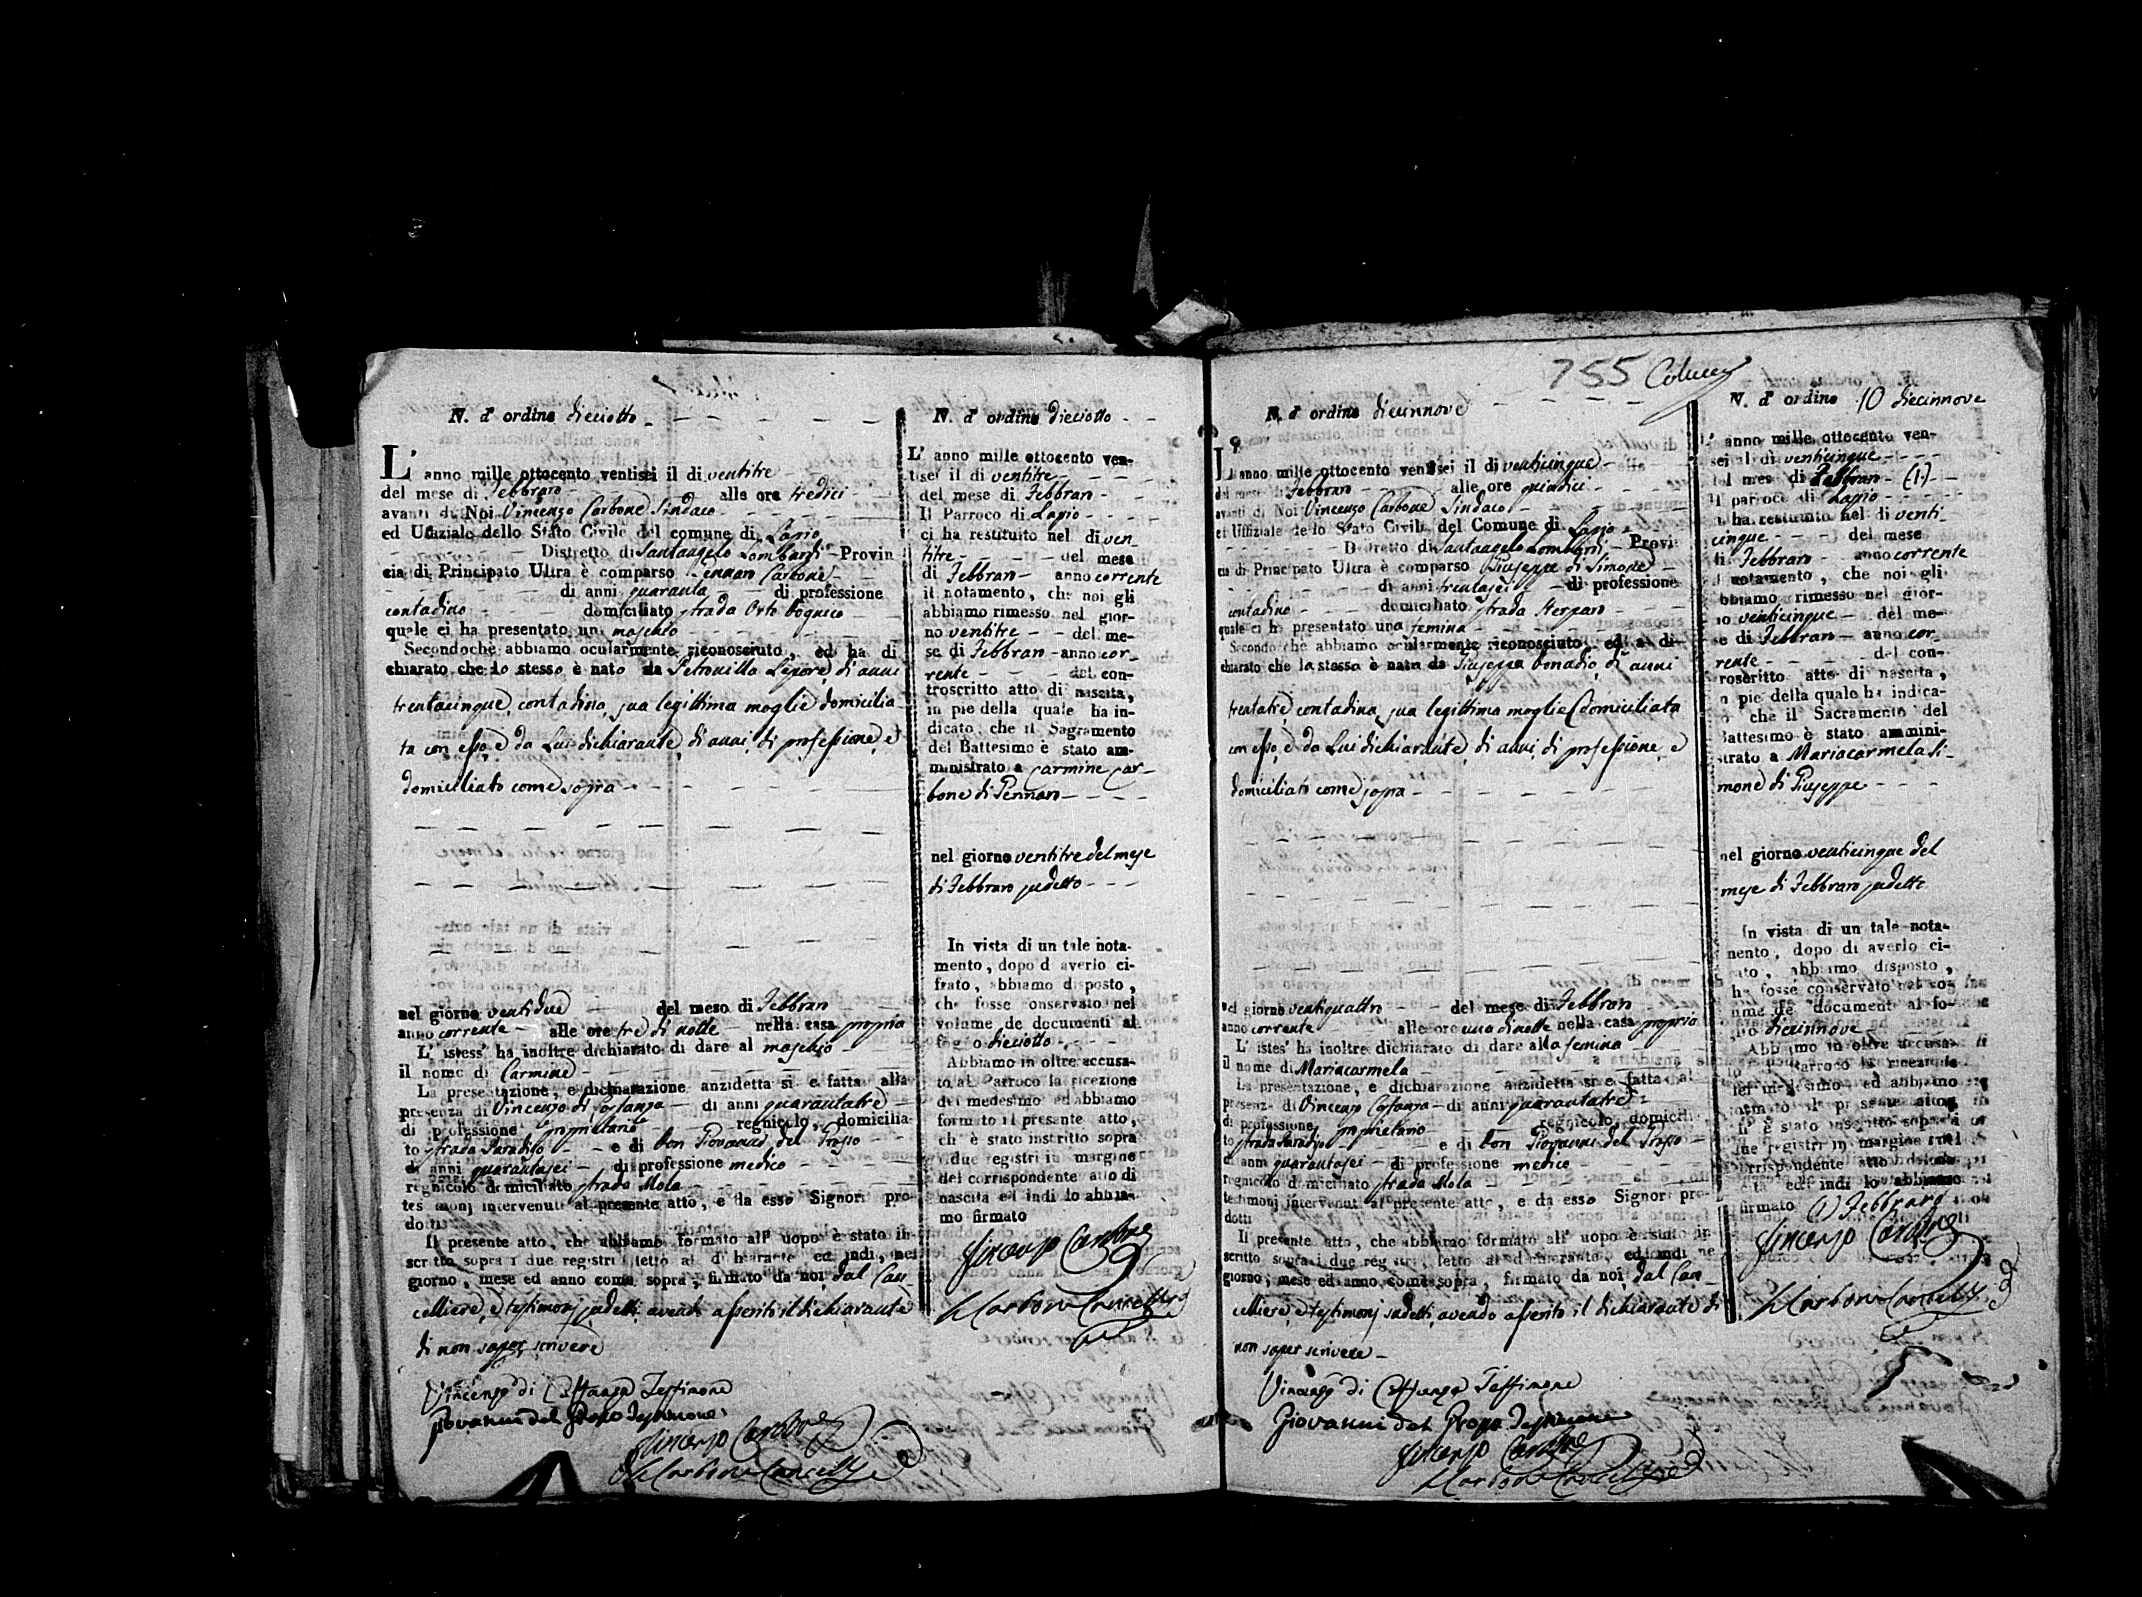 N. d' ordine dieciotto
L' anno mille ottocento ventisei il di ventitre
del mese di Febbraro alle ore tredici
avanti di Noi Vincenzo Carbone Sindaco
ed Uffiziale dello Stato Civile del comune di Lapio
Distretto di Santangelo Lombardi Provin
cia di Principato Ultra è comparso Gennaro Carbone
di anni quaranta di professione
contadino domiciliato strada Orto
quale ci ha presentato un maschio
Secondochè abbiamo ocularmente riconosciuto, ed ha di
chiarato che lo stesso è nato da Petronilla Lepore di anni
trentacinque contadina sua legittima moglie domicilia
ta con esso, e da Lui dichiarante, di anni, di professione, e
domiciliato come sopra
nel giorno ventidue del mese di Febbraro
anno corrente alle ore tre di notte nella casa propria
L' istess' ha inoltre dichiarato di dare al maschio
il nome di Carmine
La presentazione, e dichiarazione anzidetta si è fatta alla
presenza di Vincenzo di Costanza di anni quarantatre
di professione proprietario regnicolo, domicilia
to strada Paradiso e di Don Giovanni del Grosso
di anni quarantasei di professione medico
regnicolo domiciliato strada Mola
testimonj intervenuti al presente atto, e da esso Signori pro
dotti
Il presente atto, che abbiamo formato all' uopo è stato in
scritto sopra i due registri letto al dichiarante ed indi, nel
giorno, mese ed anno come sopra, firmato da noi, dal Can
celliere, e testimonj sudetti, avendo asserito il dichiarante
di non saper scrivere
Vincenzo di Costanza Testimone
Giovanni del Grosso Testimone
Vincenzo Carbone
Carbone Cancelliere
N. d' ordine dieciotto
L' anno mille ottocento ven-
tisei il di ventitre
del mese di Febbraro
Il Parroco di Lapio
ci ha restituito nel di ven
titre del mese
di Febbraro anno corrente
il notamento, che noi gli
abbiamo rimesso nel gior-
no ventitre del me-
se di Febbraro anno cor
rente del con-
troscritto atto di nascita,
in pie della quale ha in-
dicato, che il Sagramento
del Battesimo è stato am-
ministrato a Carmine Car
bone di Gennaro
nel giorno ventitre del mese
di Febbraro sudetto
In vista di un tale nota-
mento, dopo d averlo ci-
frato, abbiamo disposto,
che fosse conservato nel
volume de documenti al
foglio dieciotto
Abbiamo in oltre accusa-
to al Parroco la ricezione
del medesimo ed abbiamo
formato il presente atto,
ch' è stato inscritto sopra
i due registri in margine
del corrispondente atto di
nascita ed indi lo abbia-
mo firmato
Vincenzo Carbone
Carbone Cancelliere
755
N. d' ordine diecinnove
L' anno mille ottocento ventisei il di venticinque
del mese di Febbraro alle ore quindici
avanti di Noi Vincenzo Carbone Sindaco
ed Uffiziale dello Stato Civile del Comune di Lapio
Distretto di Santangelo Lombardi Provin
cia di Principato Ultra è comparso Giuseppe di Simone
di anni trentasei di professione
contadino domiciliato strada
quale ci ha presentato una femina
Secondochè abbiamo ocularmente riconosciuto, ed ha di-
chiarato che la stessa è nata da Giuseppa Bonadio di anni
trentatre, contadina, sua legittima moglie domiciliata
con esso, e da Lui dichiarante, di anni, di professione, e
domiciliato come sopra
nel giorno ventiquattro del mese di Febbraro
anno corrente alle ore una di notte nella casa propria
L' istes' ha inoltre dichiarato di dare alla femina
il nome di Mariacarmela
La presentazione, e dichiarazione anzidetta si è fatta al
presenza di Vincenzo Costanza di anni quarantatre
di professione proprietario regnicolo, domicilia
to strada Paradiso e di Don Giovanni del Grosso
di anni quarantasei di professione medico
regnicolo domiciliato strada Mola
testimonj intervenuti al presente atto, e da esso Signori pro
dotti
Il presente atto, che abbiamo formato all' uopo è stato in
scritto sopra i due registri, letto al dichiarante, ed indi ne
giorno, mese ed anno come sopra, firmato da noi, dal Can
celliere, e testimonj sudetti, avendo asserito il dichiarante di
non saper scrivere
Vincenzo di Costanza Testimone
Giovanni del Grosso Testimone
Vincenzo Carbone
Carbone Cancelliere
N. d' ordine 10 diecinnove
L' anno mille ottocento ven-
sei il di venticinque
del mese di Febbraro (1)
Il parroco di Lapio
ci ha restituito nel di venti
cinque del mese
di Febbraro anno corrente
il notamento, che noi gli
abbiamo rimesso nel gior-
no venticinque del me-
se di Febbraro anno cor
rente del con-
troscritto atto di nascita,
in pie della quale ha indica-
to che il Sacramento del
Battesimo è stato ammini-
strato a Mariacarmela Si
mone di Giuseppe
nel giorno venticinque del
mese di Febbraro sudetto
In vista di un tale nota-
mento, dopo di averlo ci-
frato, abbiamo disposto,
che fosse conservato nel vo
lume de documenti al fo-
glio diecinnove
Abbiamo in oltre accusa-
to al Parroco la ricezione
del medesimo, ed abbiamo
formato il presente atto,
ch' è stato inscritto sopra i
due registri in margine del
corrispondente atto di
nascita ed indi lo abbiamo
firmato (1) Febbraro
Vincenzo Carbone
Carbone Cancelliere